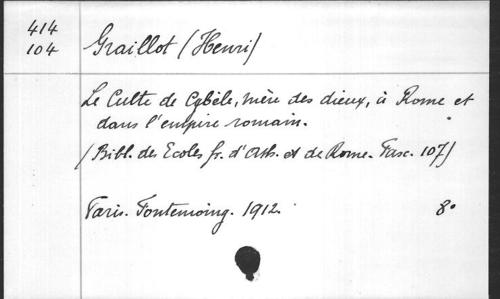 414
104
Graillot (Henri)
Le Culte de Cybèle, mère des dieux, à Rome et
dans l'empire romain.
(Bibl. des Ecoles fr. d'Ath. et de Rome. Fasc. 107)
Paris. Fontemoing. 1912. 8°